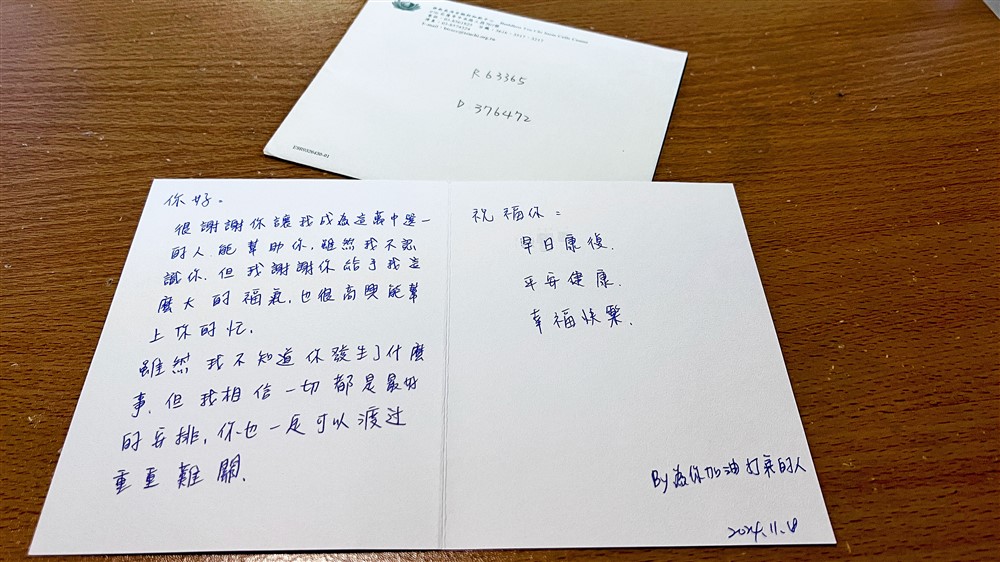 R 63365
D 376472
你好。
很謝謝你讓我成為這萬中選一
的人能幫助你,雖然我不認
識你,但我謝謝你給予我這
麼大的福氣,也很高興能幫
上你的忙.
雖然我不知道你發生了什麼
事,但我相信一切都是最好
的安排,你也一定可以渡过
重重難關.
祝福你:
早日康復.
平安健康.
幸福快樂.
By 為你加油打氣的人
2024.11.